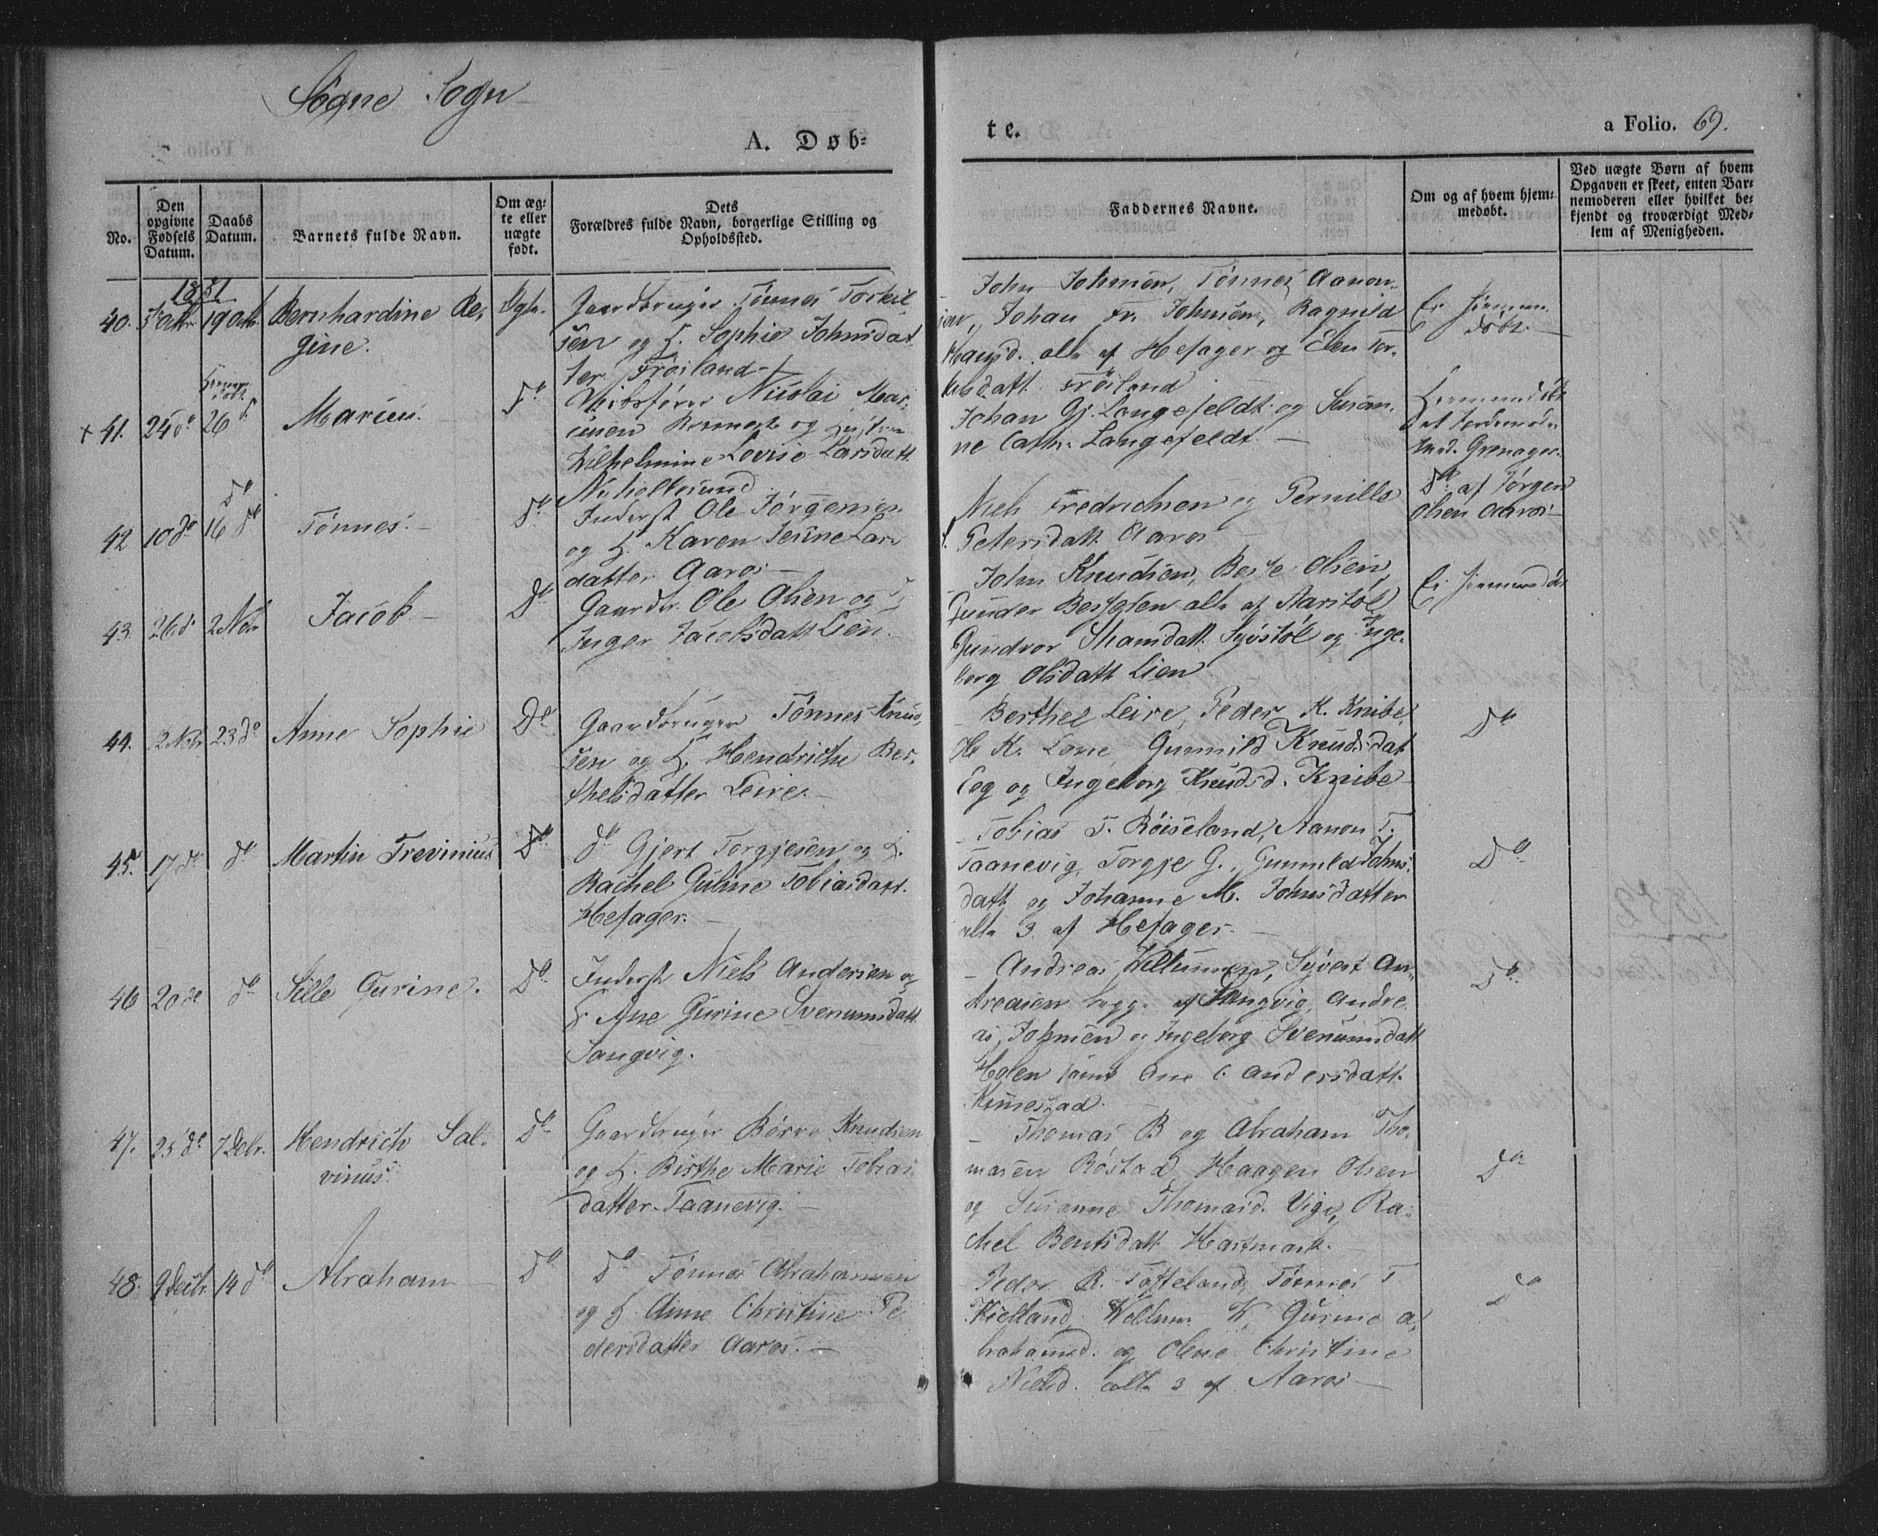 Søgne Sogn
A. Døb-
te.
a Folio. 69.
No.
Den opgivne Fødsels Datum.
Daabs Datum.
Barnets fulde Navn.
Om ægte eller uægte født.
Dets Forældres fulde Navn, borgerlige Stilling og Opholdssted.
Faddernes Navne.
Om og af hvem hjemmedøbt.
Ved uægte Børn af hvem Opgaven er skeet, enten Barnemoderen eller hvilket bekjendt og troværdigt Medlem af Menigheden.
1851
40.
19 Octbr
Bernhardine Re-
gine.
Ægte.
Gaardbruger Tønnes Torkil
sen og H. Sophie Johnsdat
ter Frøiland
John Johnsen, Tønnes Aanon-
sen, Johan Fr. Johnsen, Ragnild
Hansd. alle af Hefager og Elen Tor-
kilsdatt Frøiland
Ei hjemme
døbt.
+ 41.
24 do
26 do
Marius.
Do
Nicolai Mar-
og Hustru
Wilhelmine Lovise Larsdatt
Ny Hellesund
Johan Gj. Langefeldt og Susan-
ne Cath. Langefeldt
Hjemmedøbt
42
10 do
Do
16 do
Tønnes.
Do
Inderst Ole Jørgensen
og H. Karen Lars
datter Aaros
Niels Fredrichsen og Pernille
Petersdatt. Aaros
Do af Jørgen
Olsen Aaros
43.
26 do
2 Nvbr
Jacob
Do
Gaardbr. Ole Olsen og H
Inger Jacobsdatt Lien.
John Knudsen, Berge Olsen
Gunder alle af Aarstøl
Gundvor Syvstøl og Inge-
borg Olsdatt Lien
Ei hjemmedøbt
44.
12 Nvbr
23 do
Anne Sophie
Do
Gaardbruger Tønnes Knud
sen og H. Hendrikke Ber-
thelsdatter Leire.
Berthel Leire, Peder K. Knibe,
Ole K. Lone, Gunnild Knudsdat
Eeg og Ingeborg Knudsd. Knibe
Do
45.
17 do
do
Martin Trevinius
Do
do Gjert Torgjesen og H.
Rachel Guline Tobiasdatt.
Hefager.
Tobias T. Røiseland, Aanon T.
Taanevig, Torgje G., Gunnild Johns-
datt og Johanne M. Johnsdatter
alle 3 af Hefager.
Do
46
20 do
do
Sille Gurine.
Do
Inderst Niels Andersen og
H. Ane Gurine Svenumsdatt
Langvig.
Andreas Wellumsen, Syvert An-
dreasen begg. af Langvig, Andre
as Johnsen og Ingeborg Svenumsdatt
Holen samt Ane C. Andersdatt.
Do
47.
25 do
7 Debr.
Hendrich Sal-
vinus.
Do
Gaardbruger Børre Knudsen
og H. Birthe Marie Tobias
datter Taanevig.
Thomas B. og Abraham Tho-
masen Røstad, Haagen Olsen
og Susanne Thomasd. Vige, Ra-
chel Bentsdatt Hartmark.
Do
48.
9 Decbr.
14 do
Abraham
Do
Do Tønnes Abrahamsen
og H. Anne Christine Pe
dersdatter Aaros.
Peder B. Tofteland, Tønnes T.
Kielland, Wellum W, Gurine A-
brahamsd. og Olene Christine
Nielsd. alle 3 af Aaros
Do